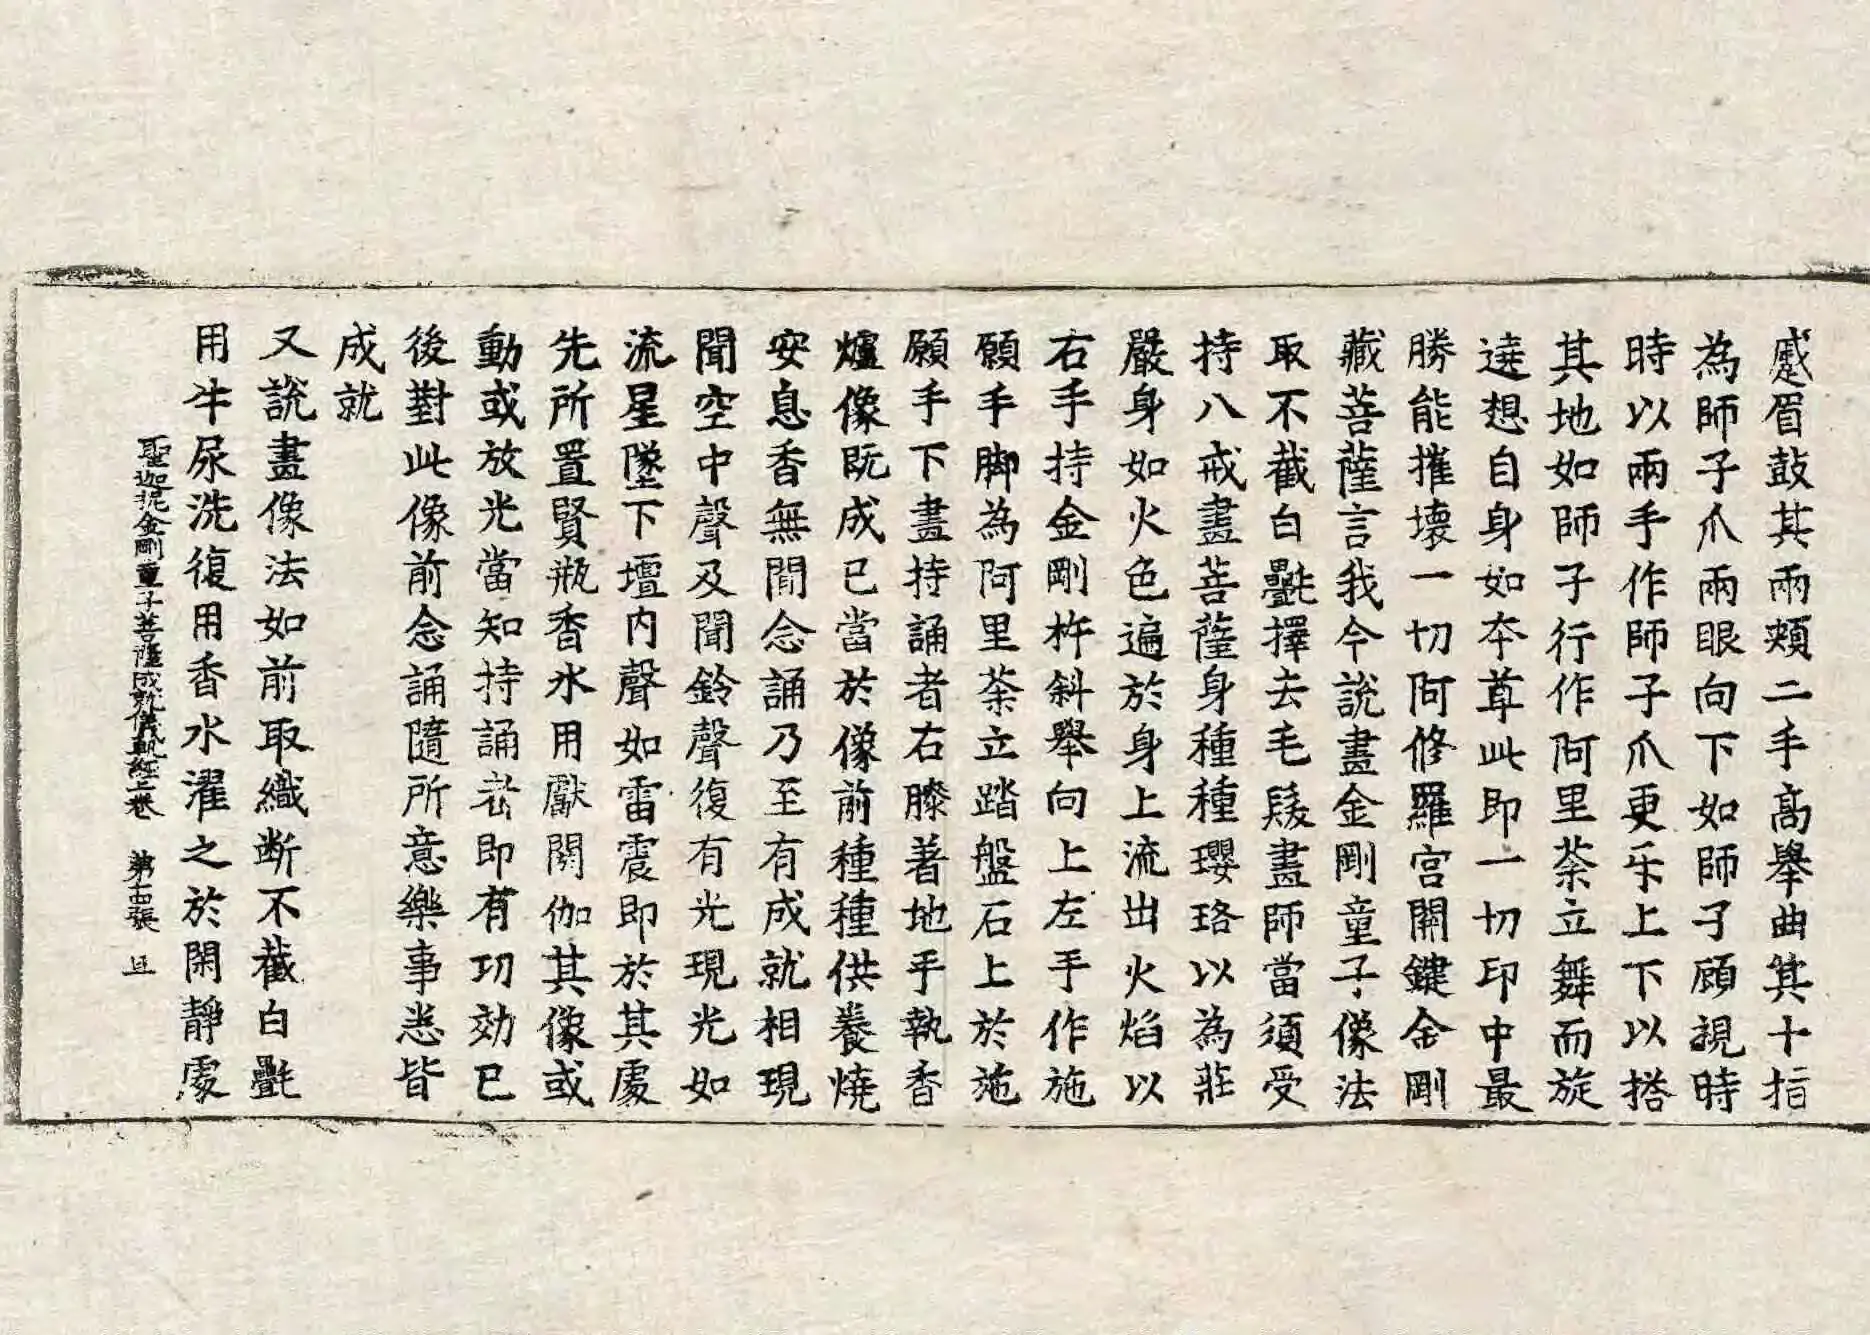 蹙眉鼓其兩頰二手高舉曲其十指
為師子爪兩眼向下如師子顧視時
時以兩手作師子爪更乐上下以搭
其地如師子行作阿里荼立舞而旋
遶想自身如夲尊此即一切印中最
勝能摧壞一切阿修羅宮關鍵金剛
藏菩薩言我今說畫金剛童子像法
取不截白㲲擇去毛髮畫師當須受
持八戒畫菩薩身種種瓔珞以為莊
嚴身如火色遍於身上流出火焰以
右手持金剛杵斜舉向上左手作施
願手脚為阿里荼立踏盤石上於施
願手下畫持誦者右膝著地手執香
爐像既成已當於像前種種供養燒
安息香無閒念誦乃至有成就相現
聞空中聲及聞鈴聲復有光現光如
流星墜下壇內聲如雷震即於其處
先所置賢瓶香水用獻閼伽其像或
動或放光當知持誦者即有功効已
後對此像前念誦隨所意樂事悉皆
成就
又說畫像法如前取織断不截白㲲
用牛尿洗復用香水濯之於閑靜處
聖迦抳金剛童子菩薩成就儀軌經上卷 第十四張